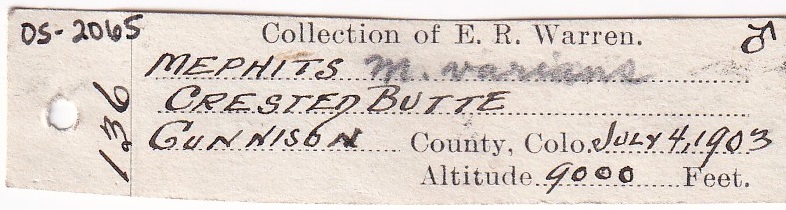 DS-2065
Collection of E. R. Warren. ♂
MEPHITS m. varians
CRESTED BUTTE
GUNNISON County, Colo. JULY 4, 1903
Altitude 9000 Feet.
136